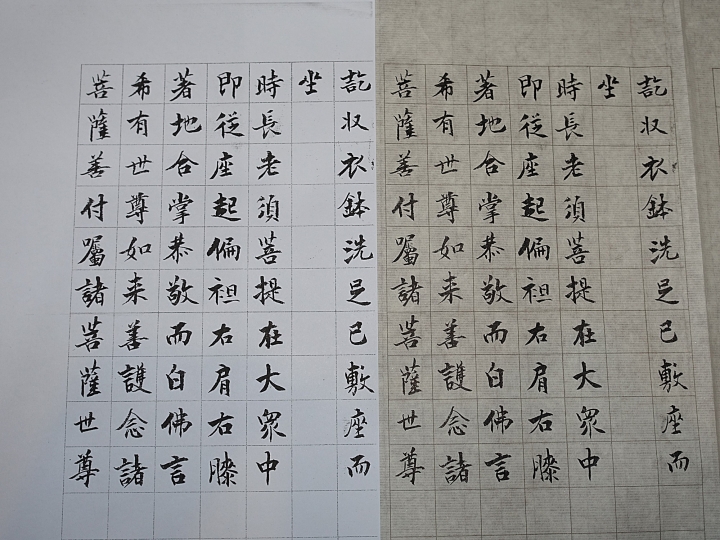 訖収衣鉢洗足已敷座而
坐
時長老須菩提在大衆中
即從座起偏袒右肩右膝
著地合掌恭敬而白佛言
希有世尊如来善護念諸
菩薩善付囑諸菩薩世尊
訖収衣鉢洗足已敷座而
坐
時長老須菩提在大衆中
即從座起偏袒右肩右膝
著地合掌恭敬而白佛言
希有世尊如来善護念諸
菩薩善付囑諸菩薩世尊